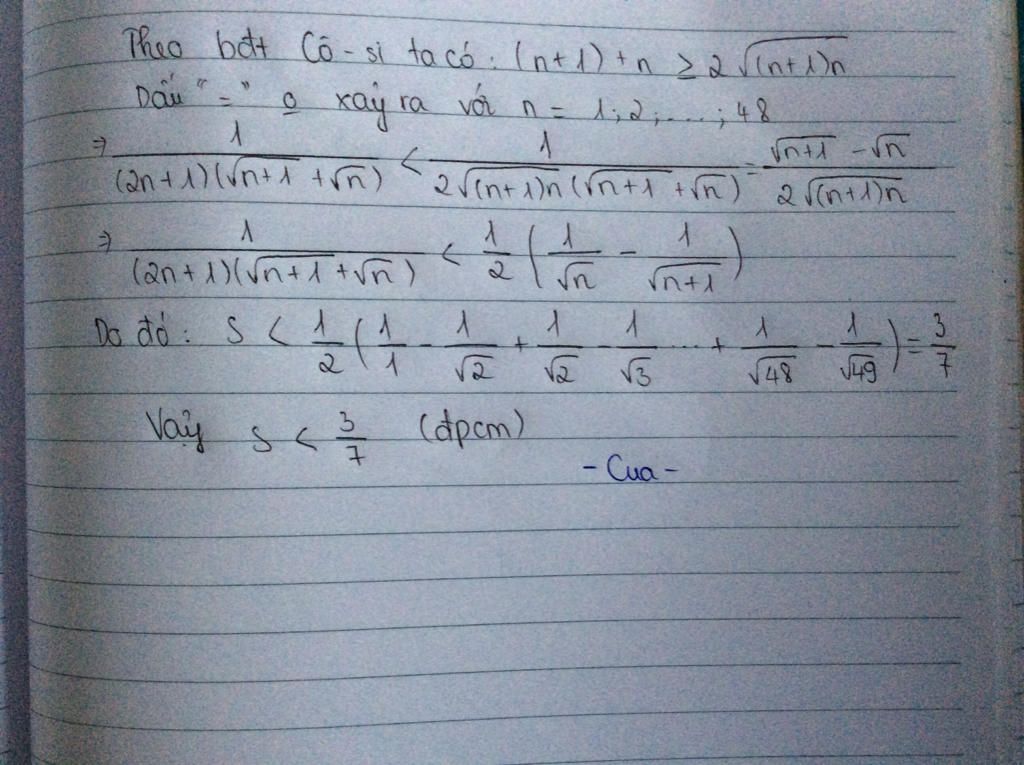 Theo bđt Cô-si ta có: (n+1)+n ≥ 2√((n+1)n)
Dấu "=" o xảy ra với n = 1; 2; ...; 48
⇒ 1/((2n+1)(√(n+1) + √n)) < 1/(2√((n+1)n)(√(n+1) + √n)) = (√(n+1) - √n)/(2√((n+1)n))
⇒ 1/((2n+1)(√(n+1) + √n)) < 1/2 (1/√n - 1/√(n+1))
Do đó: S < 1/2 (1/1 - 1/√2 + 1/√2 - 1/√3 ... + 1/√48 - 1/√49) = 3/7
Vậy S < 3/7 (đpcm)
- Cua -